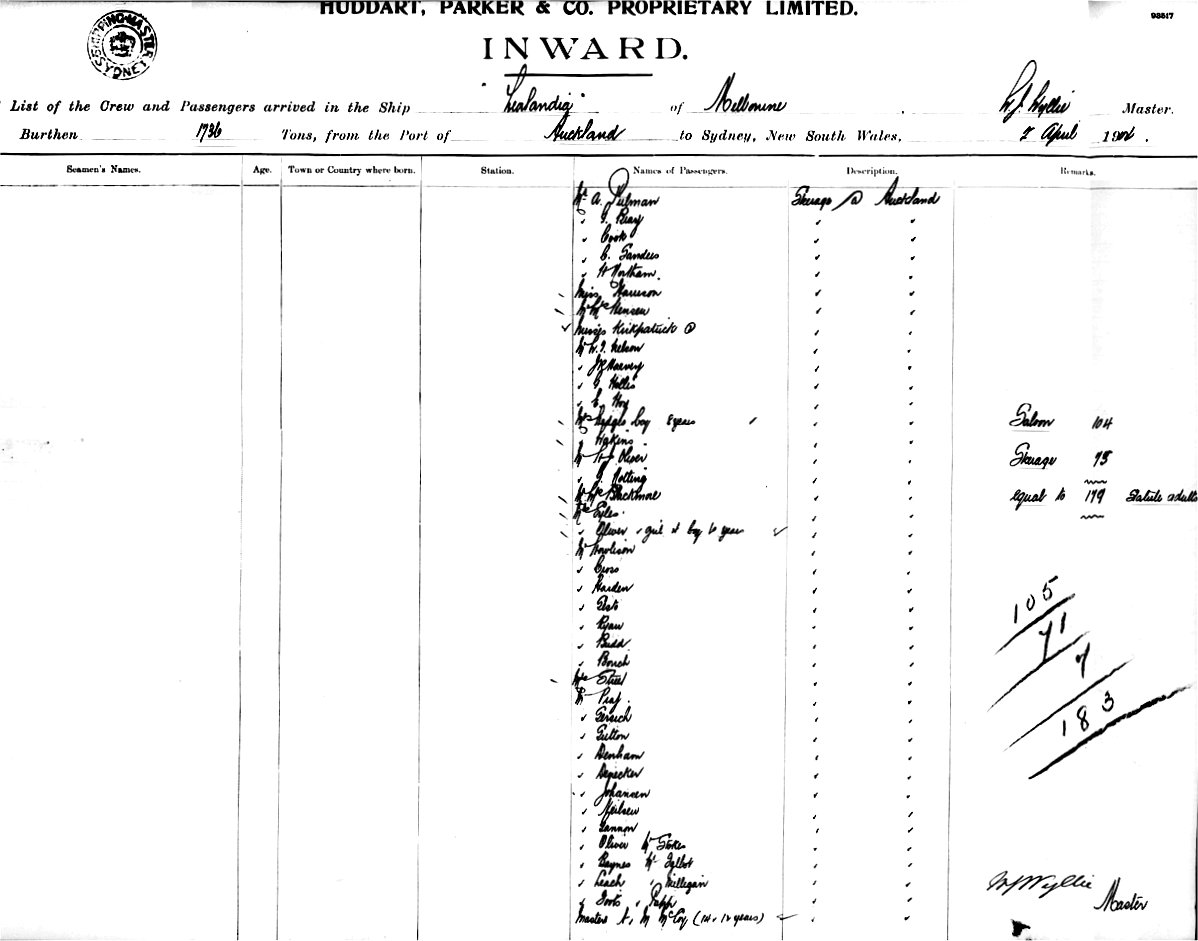 HUDDART, PARKER & CO. PROPRIETARY LIMITED.
98517
SHIPPING MASTER SYDNEY
INWARD.
List of the Crew and Passengers arrived in the Ship "Zealandia" of Melbourne, W.J. Wyllie Master.
Burthen 1736 Tons, from the Port of Auckland to Sydney, New South Wales, 2 April 1902.
Seamen's Names. Age. Town or Country where born. Station. Names of Passengers. Description. Remarks.
Mr A. Pulman Steerage @ Auckland
" Bray " "
" Cook " "
" C. Sanders " "
" H Northam " "
Miss Harrison " "
Mr Mrs Hensen " "
Misses Kirkpatrick " "
Mr W. J. Nelson " "
" Harvey " "
" Hollis " "
" E. Hoy " "
Mrs boy 8 years " " Saloon 104
" "
Mr Oliver " " Steerage 75
" Notting " "
Mr Mrs Blackmore " " equal to 179 Statute adults
Mrs Eyles " "
" Oliver " girl & boy years " "
Mr Rowlison " "
" Cross " "
" Harden " " 105
" "
" Ryan " " 71
" Budd " "
" " " 7
Mrs Street " "
Mr " " 183
" " "
" Sutton " "
" Denham " "
" " "
" Johansen " "
" Neilsen " "
" Gannon " "
" Oliver Mr Stokes " "
" Baynes Mr Talbot " "
" Leach " Milligan " " W J Wyllie
" " Papp " " Master
Masters A, M McCoy (14, 12 years) " "